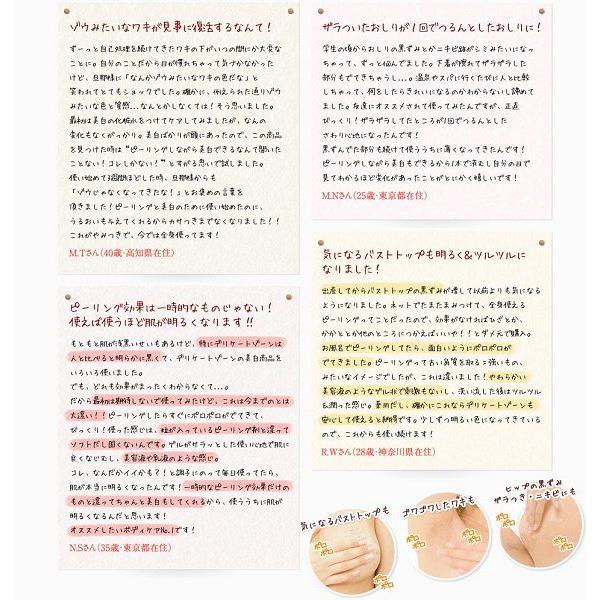 ゾウみたいなワキが見事に復活するなんて！
ずーっと自己処理を続けてきたワキの下がいつの間にか大変な
ことに。自分のことだから目が慣れちゃって気づかなかった
けど、旦那様に「なんかゾウみたいなワキの色だな」と
笑われてとてもショックでした。確かに、例えられた通りゾウ
みたいな色と質感…なんとかしなくては！そう思いました。
最初は美白の化粧水をつけてケアしてみましたが、なんの
変化もなくがっかり。美白ばかりが頭にあったので、この商品
を見つけた時は"ピーリングしながら美白もできるなんて聞いた
ことない！コレしかない！"とすがる思いで試しました。
使い始めて3週間ほどした時、旦那様からも
「ゾウじゃなくなってきたな！」とお褒めの言葉を
頂きました！ピーリングと美白のために使い始めたのに、
うるおいも与えてくれるからカサつきまでなくなりました！！
これがやみつきで、今では全身使ってます！
M.Tさん(40歳･高知県在住)
ピーリング効果は一時的なものじゃない！
使えば使うほど肌が明るくなります!!
もともと肌が浅黒いせいもあるけど、特にデリケートゾーンは
人と比べると明らかに黒くて、デリケートゾーンの美白商品を
いろいろ使いました。
でも、どれも効果がまったくわからなくて…。
だから最初は期待しないで使ってみたけど、これは今までのとは
大違い！！ピーリングしたらすぐにポロポロがでてきて、
びっくり！使った感じは、粒が入っているピーリング剤と違って
ソフトだし固くないんです。ゲルがサラッとした使い心地で肌に
良くなじむし、美容液や乳液のような感じ。
コレ、なんだかイイかも？！と調子にのって毎日使ってたら、
肌が本当に明るくなったんです！一時的なピーリング効果だけの
ものと違ってちゃんと美白もしてくれるから、使ううちに肌が
明るくなるんだと思います！
オススメしたいボディケアNo.1です！
N.Sさん(35歳･東京都在住)
ザラついたおしりが1回でつるんとしたおしりに！
学生の頃からおしりの黒ずみとかニキビ跡がシミみたいになっ
ちゃって、ずっと悩んでました。下着が擦れてザラザラした
部分もでてきちゃうし…。温泉やスパに行くたびに人と比較
しちゃって、何をしたらきれいになるのかわからないし諦めて
ました。友達にオススメされて使ってみたんですが、正直
びっくり！ザラザラしてたところが1回でつるんとした
さわり心地になったんです！
黒ずんでた部分も続けて使ううちに薄くなってきたんです！
ピーリングしながら美白もできるから1本で済むし自分の目で
見てわかるほど変化があったことがとにかく嬉しいです！
M.Nさん(25歳･東京都在住)
気になるバストトップも明るく&ツルツルに
なりました！
出産してからバストトップの黒ずみが増して以前よりも気になる
ようになりました。ネットでたまたまみつけて、全身使える
ピーリングってことだったので、効果がなければひざとか、
かかととか他のところにつかえばいいや！！とダメ元で購入。
お風呂でピーリングしてたら、面白いようにポロポロが
でてきました。ピーリングって古い角質を取る=強いもの、
みたいなイメージでしたが、これは違いました！やわらかい
美容液のようなゲル状で刺激もないし、洗い流した後はツルツル
&潤った感じ。要用だし、確かにこれならデリケートゾーンも
安心して使えると納得です。少しずつ明るい色になってきている
ので、これからも使い続けます！
R.Wさん(28歳･神奈川県在住)
気になるバストトップも
ゴワゴワしたワキも
ヒップの黒ずみ
ザラつき・ニキビにも
ポロ
ポロ
ポロ
ポロ
ポロ
ポロ
ポロ
ポロ